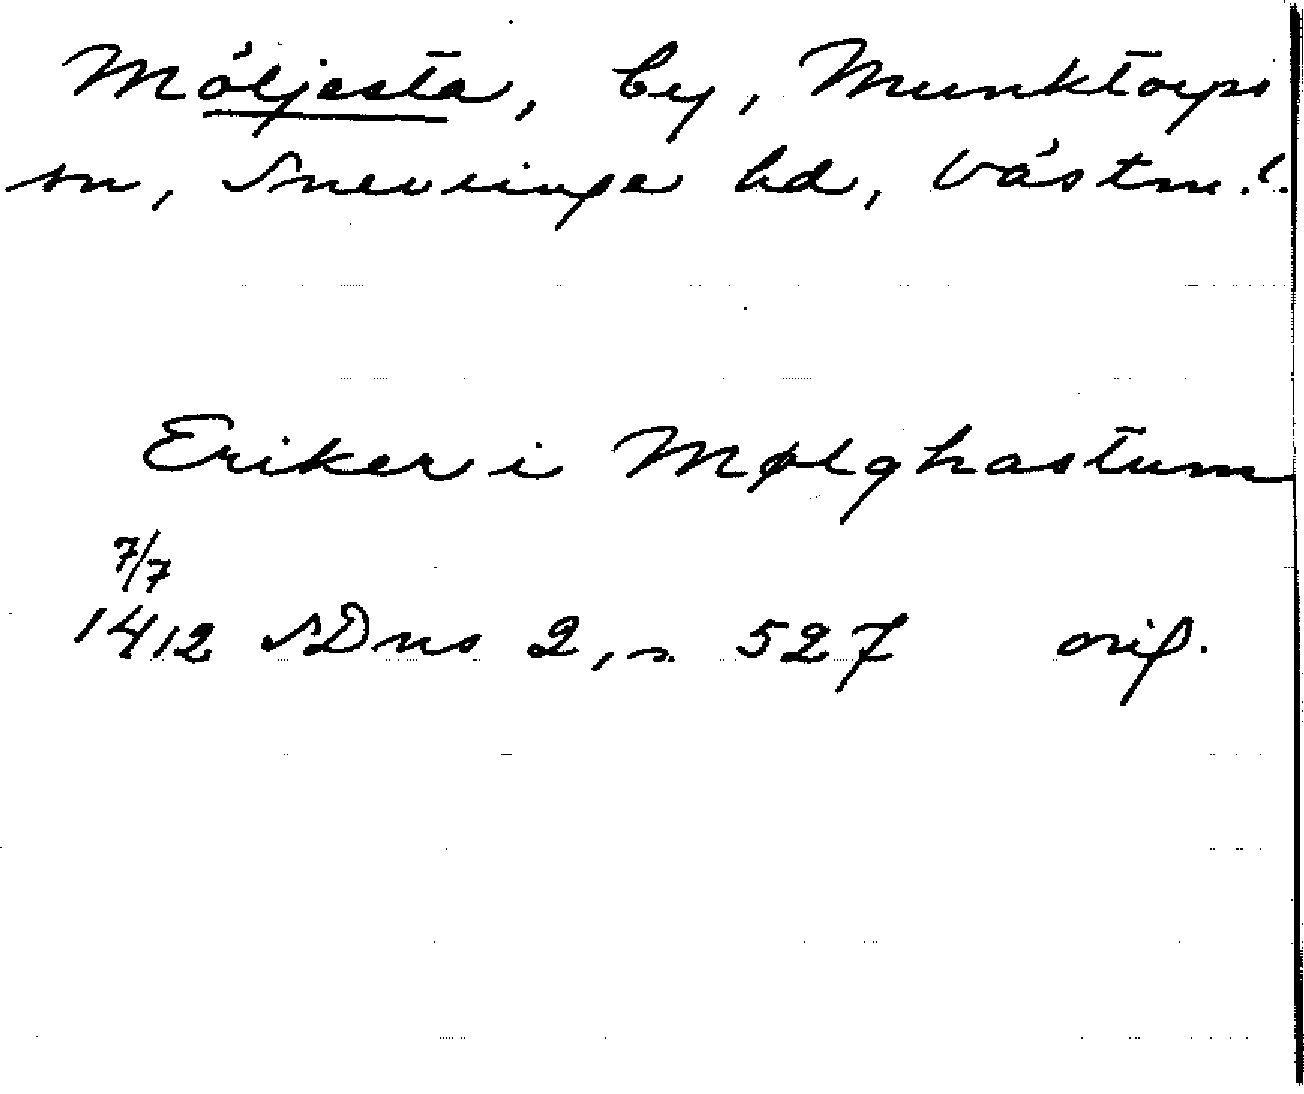 Möljesta, by, Munktorps
sn, Snevringe hd, Västm.l.
Eriker i Mølghastum
7/7
1412 SDns 2, s. 527 orig.